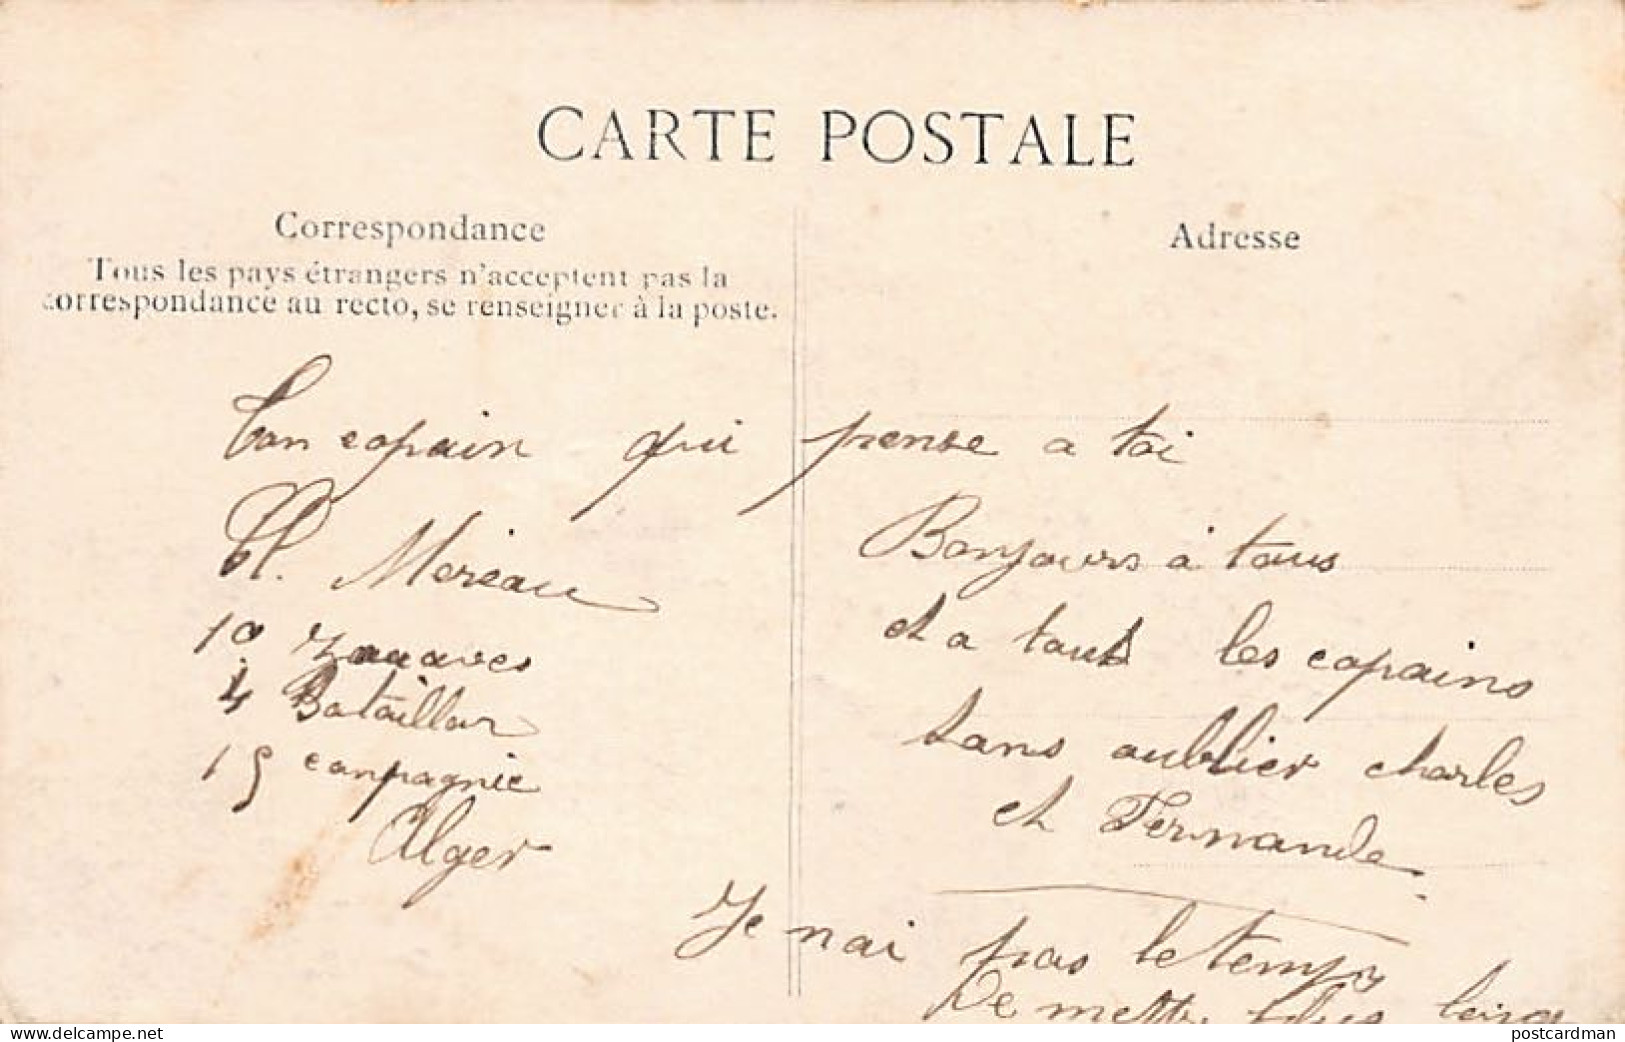 CARTE POSTALE
Correspondance
Tous les pays étrangers n'acceptent pas la
correspondance au recto, se renseigner à la poste.
Adresse
Ton copain qui pense a toi
H. Moreau
10 zouaves
4 Bataillon
15 compagnie
Alger
Bonjours à tous
et a tout les copains
sans oublier charles
et Fernande
Je nai pas le temps
De mettre plus
delcampe.net
postcardman